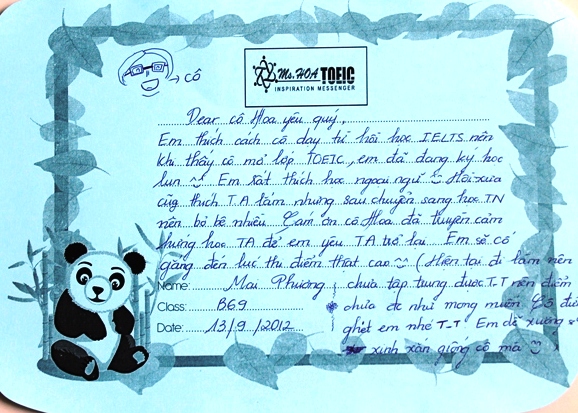 → cô
Ms. HOA TOEIC
INSPIRATION MESSENGER
Dear cô Hoa yêu quý,
Em thích cách cô dạy từ hồi học IELTS nên
khi thấy cô mở lớp TOEIC, em đã đăng ký học
lun. Em rất thích học ngoại ngữ Hồi xưa
cũng thích TA lắm nhưng sau chuyển sang học TN
nên bỏ bê nhiều. Cám ơn cô Hoa đã truyền cảm
hứng học TA để em yêu TA trở lại. Em sẽ cố
gắng đến lúc thi điểm thật cao (Hiện tại đi làm nên
Name: Mai Phương ; chưa tập trung được T.T nên điểm
Class: B69 chưa đc như mong muốn. Cô
Date: 13/9/2012 ghét em nhé T-T Em dễ xương
xinh xắn giống cô mà